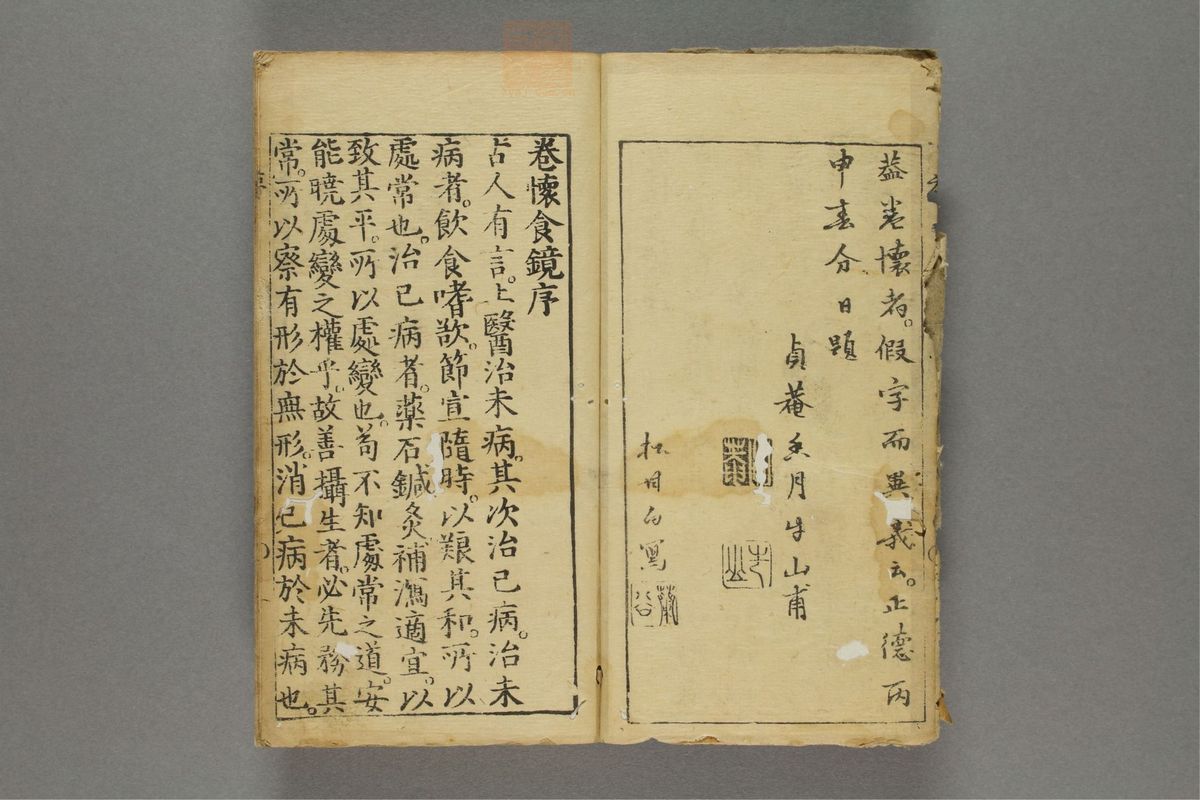 蓋卷懷者。假字而異義云。正德丙
申春分日題
貞菴香月牛山甫
牛山
卷懷食鏡序
古人有言。上醫治未病。其次治已病。治未
病者。飲食嗜欲。節宣隨時。以養其和。所以
處常也。治已病者。藥石鍼灸。補瀉適宜。以
致其平。所以處變也。苟不知處常之道。安
能曉處變之權乎。故善攝生者。必先務其
常。所以察有形於無形。消已病於未病也。